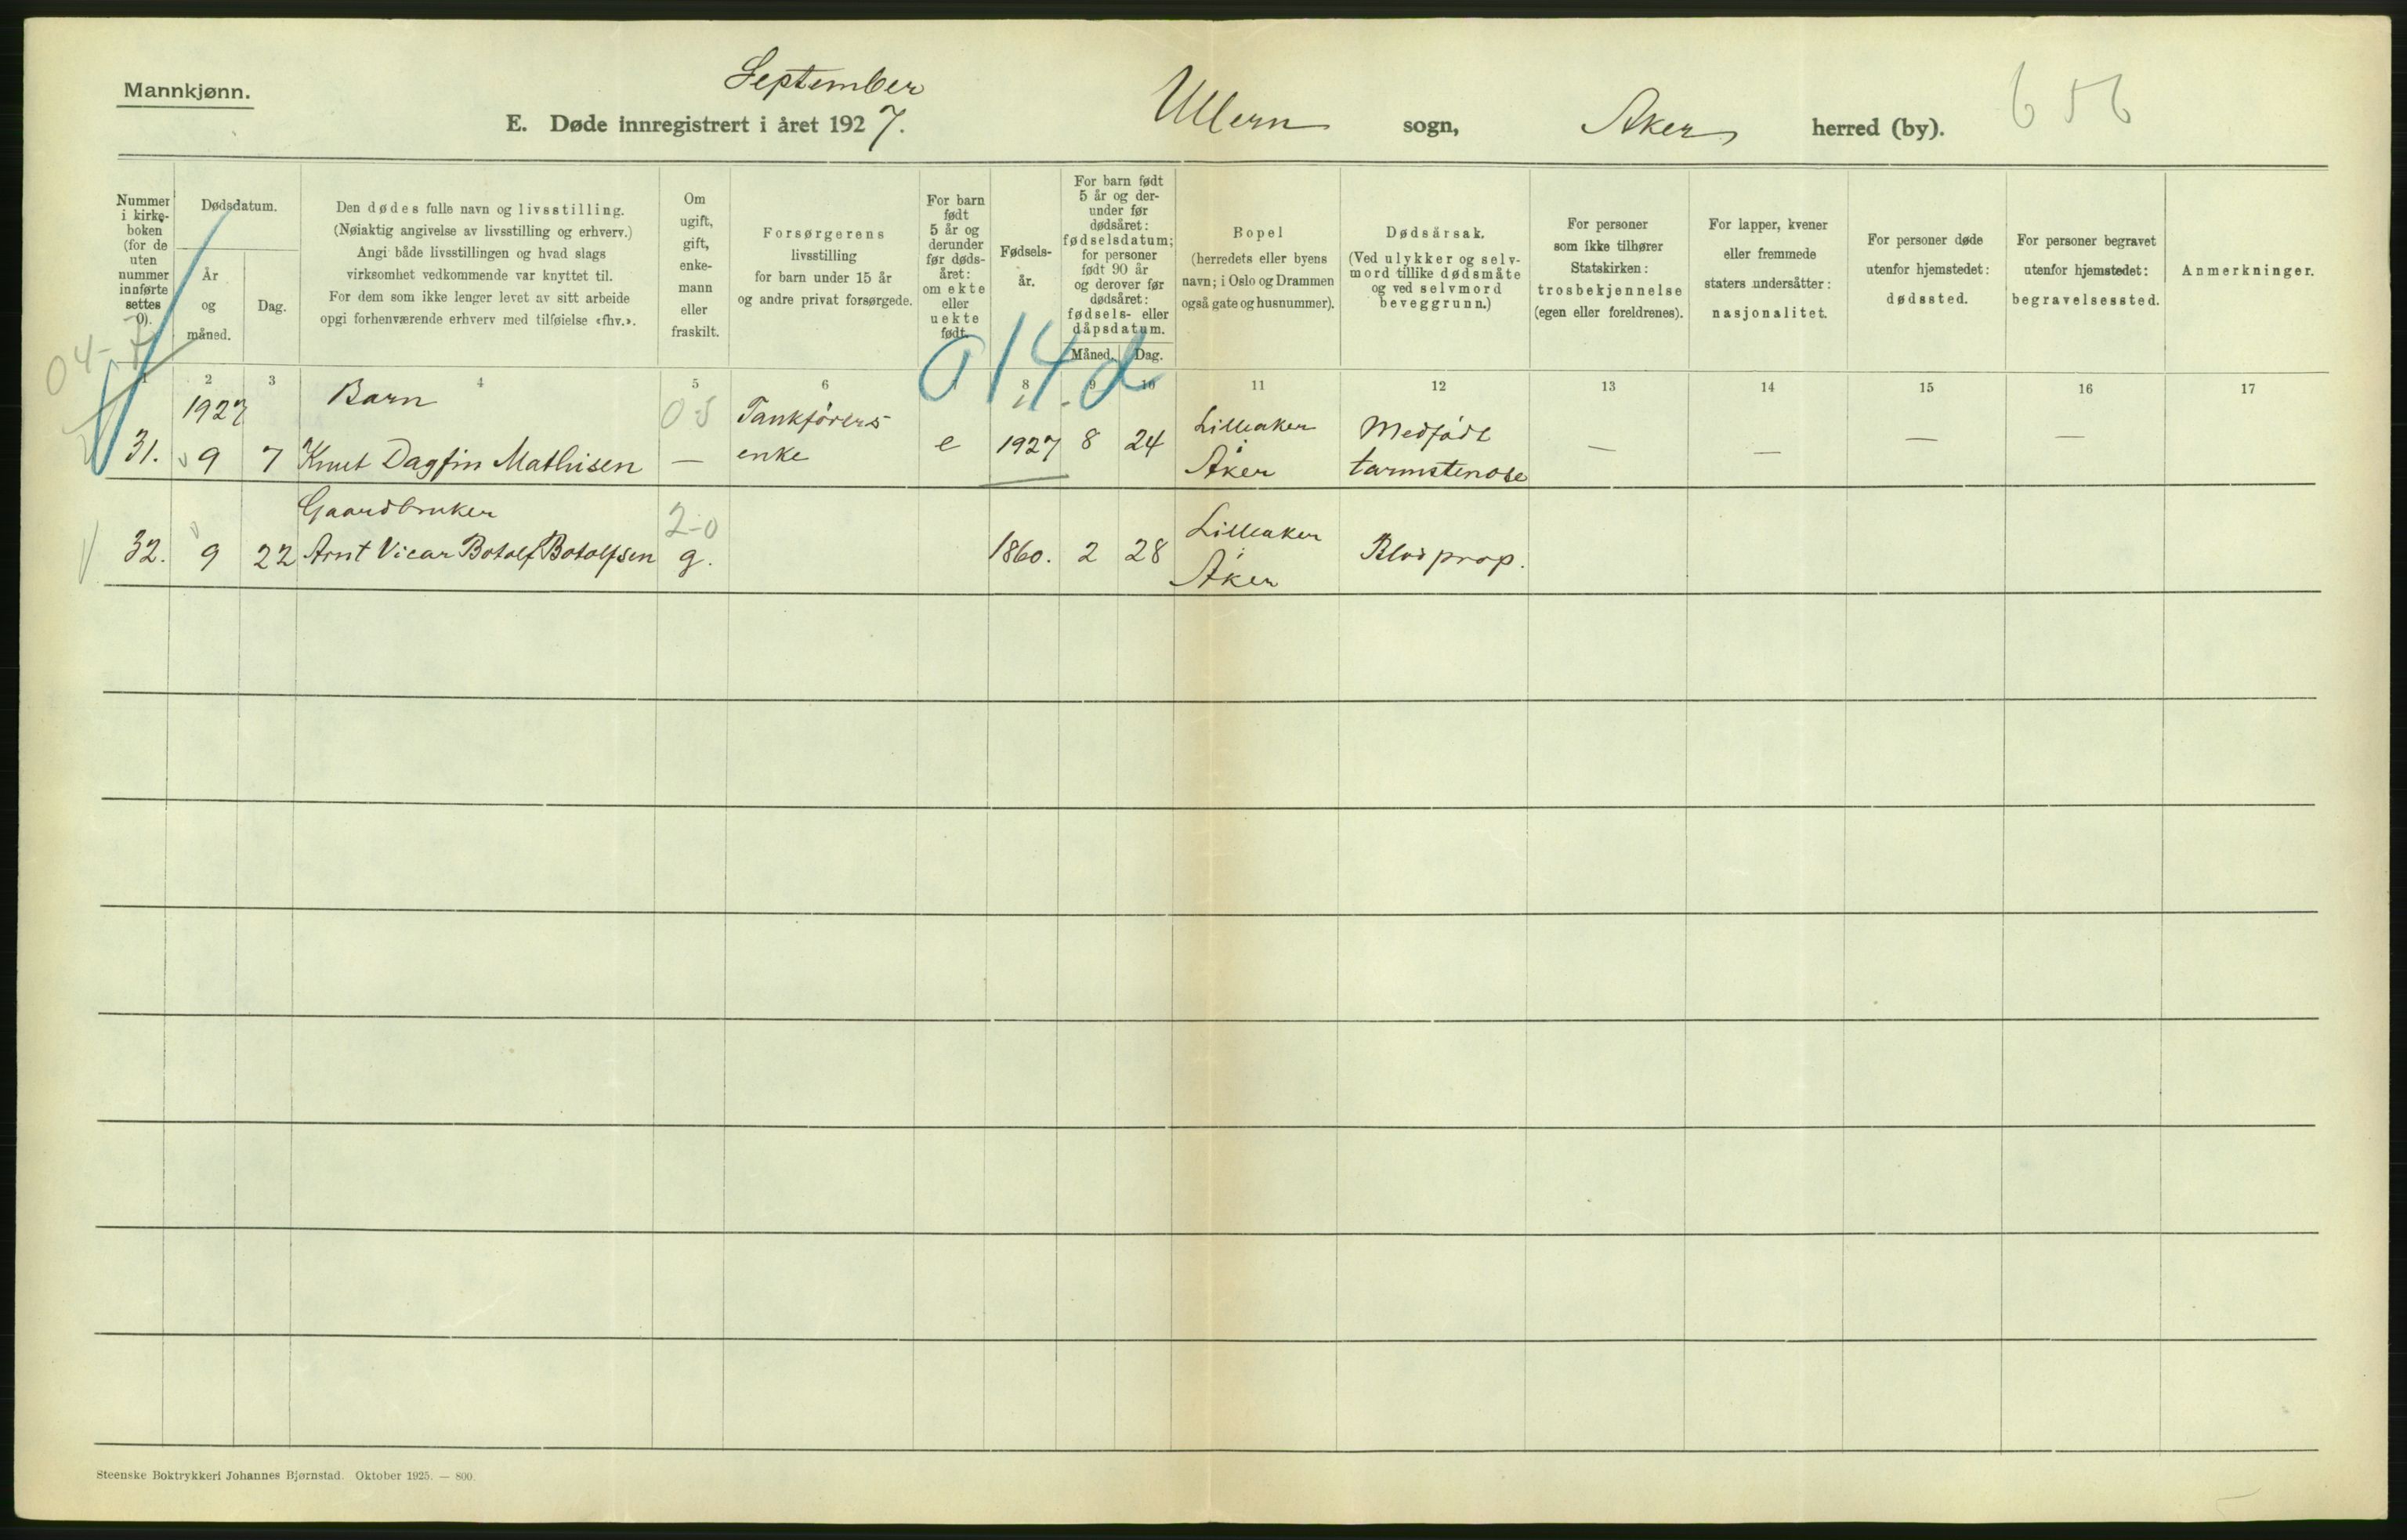 Mannkjønn.
September
E. Døde innregistrert i året 1927.
Ullern sogn,
Aker herred (by).
656
Nummer
i kirke-
boken
(for de
uten
nummer
innførte
settes
0).
Dødsdatum.
År
og
måned.
Dag.
Den dødes fulle navn og livsstilling.
(Nøiaktig angivelse av livsstilling og erhverv.)
Angi både livsstillingen og hvad slags
virksomhet vedkommende var knyttet til.
For dem som ikke lenger levet av sitt arbeide
opgi forhenværende erhverv med tilføielse «fhv.».
Om
ugift,
gift,
enke-
mann
eller
fraskilt.
Forsørgerens
livsstilling
for barn under 15 år
og andre privat forsørgede.
For barn
født
5 år og
derunder
før døds-
året:
om ekte
eller
uekte
født.
Fødsels-
år.
For barn født
5 år og der-
under før
dødsåret:
fødselsdatum;
for personer
født 90 år
og derover før
dødsåret:
fødsels- eller
dåpsdatum.
Måned.
Dag.
Bopel
(herredets eller byens
navn; i Oslo og Drammen
også gate og husnummer).
Dødsårsak.
(Ved ulykker og selv-
mord tillike dødsmåte
og ved selvmord
beveggrunn.)
For personer
som ikke tilhører
Statskirken:
trosbekjennelse
(egen eller foreldrenes).
For lapper, kvener
eller fremmede
staters undersåtter:
nasjonalitet.
For personer døde
utenfor hjemstedet:
dødssted.
For personer begravet
utenfor hjemstedet:
begravelsessted.
Anmerkninger.
04-7
014d
1 2 3 4 5 6 7 8 9 10 11 12 13 14 15 16 17
1927 Barn 05 Tankførers Lilleaker Medfødt
31. 9 7 Knut Dagfin Mathisen — enke e 1927 8 24 Aker tarmstenose — — — —
Gaardbruker 2-0 Lilleaker
32. 9 22 Arnt Vicar Botolf Botolfsen g. 1860. 2 28 Aker Blodprop.
Steenske Boktrykkeri Johannes Bjørnstad. Oktober 1925. — 800.